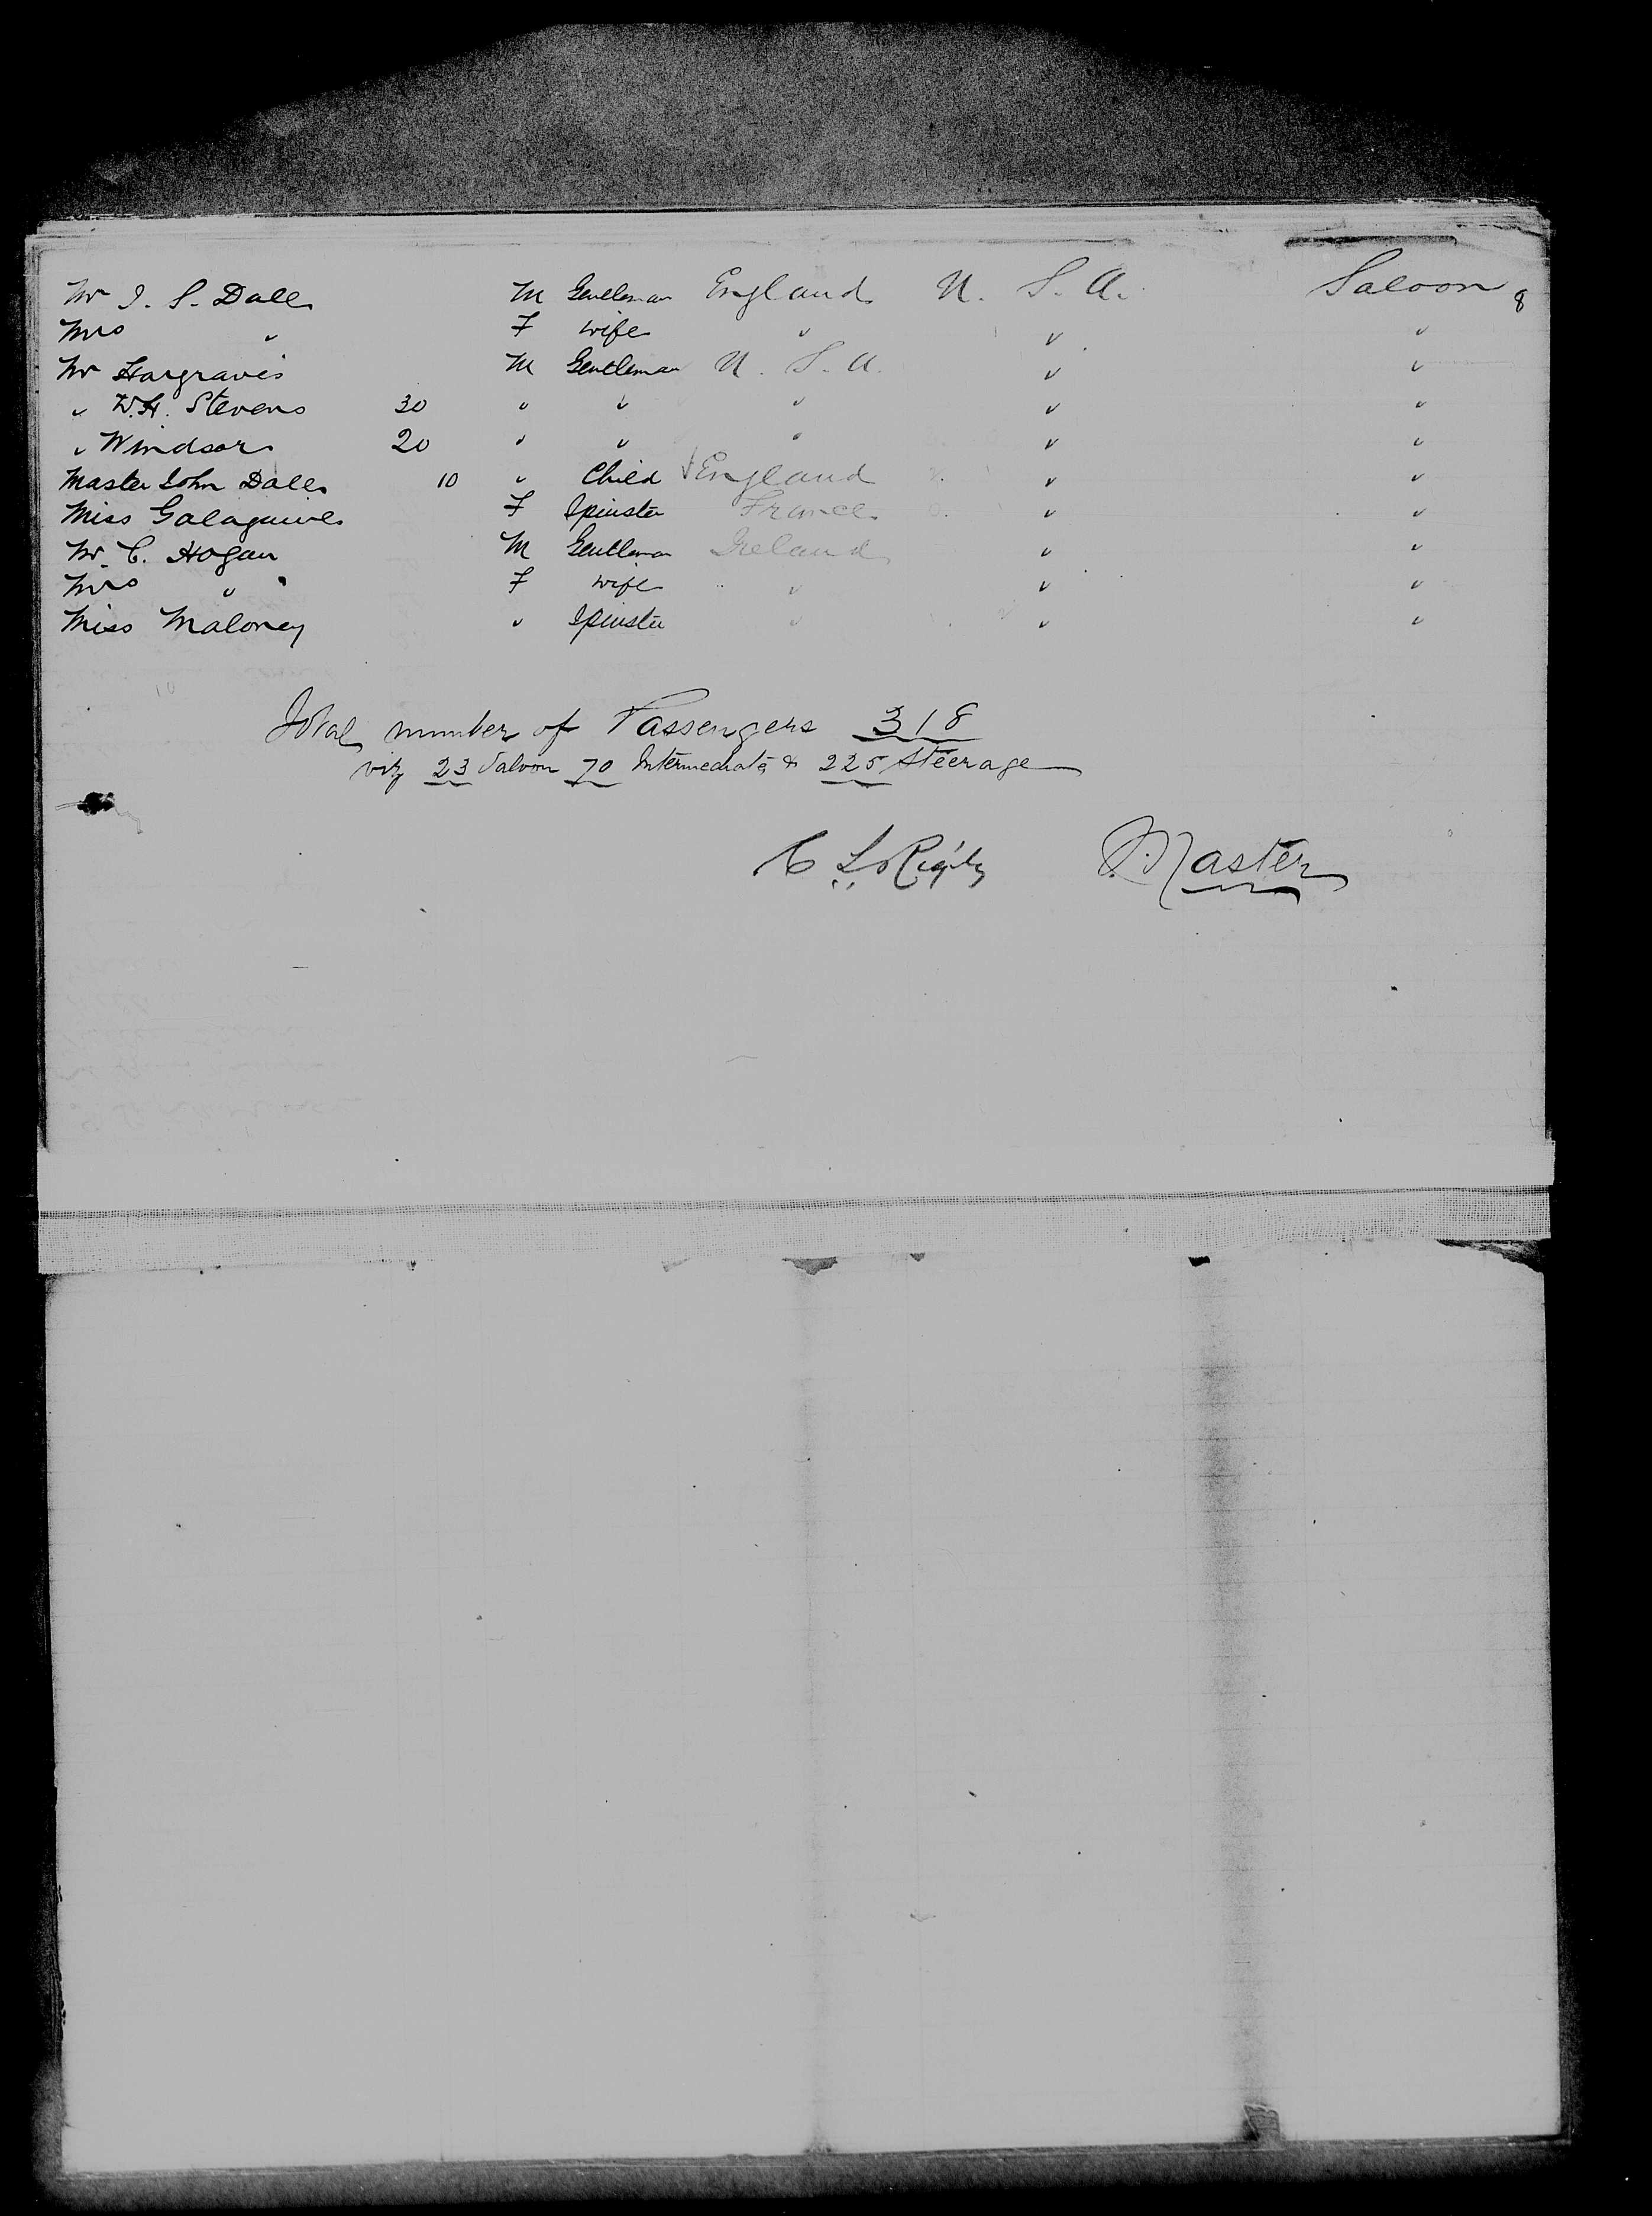 Mr J. S. Dale M Gentleman England U. S. A. Saloon 8
Mrs " F Wife " " "
Mr Hargraves M Gentleman U. S. A. " "
" W.H. Stevens 30 " " " " "
" Windsor 20 " " " " "
Master John Dale 10 " Child England " "
Miss F Spinster France " "
Mr C. Hogan M Gentleman Ireland " "
Mrs " F Wife " " "
Miss Maloney " Spinster " " "
10
Total number of Passengers 318
viz 23 Saloon 70 Intermediate & 225 Steerage
C L Rigby Master